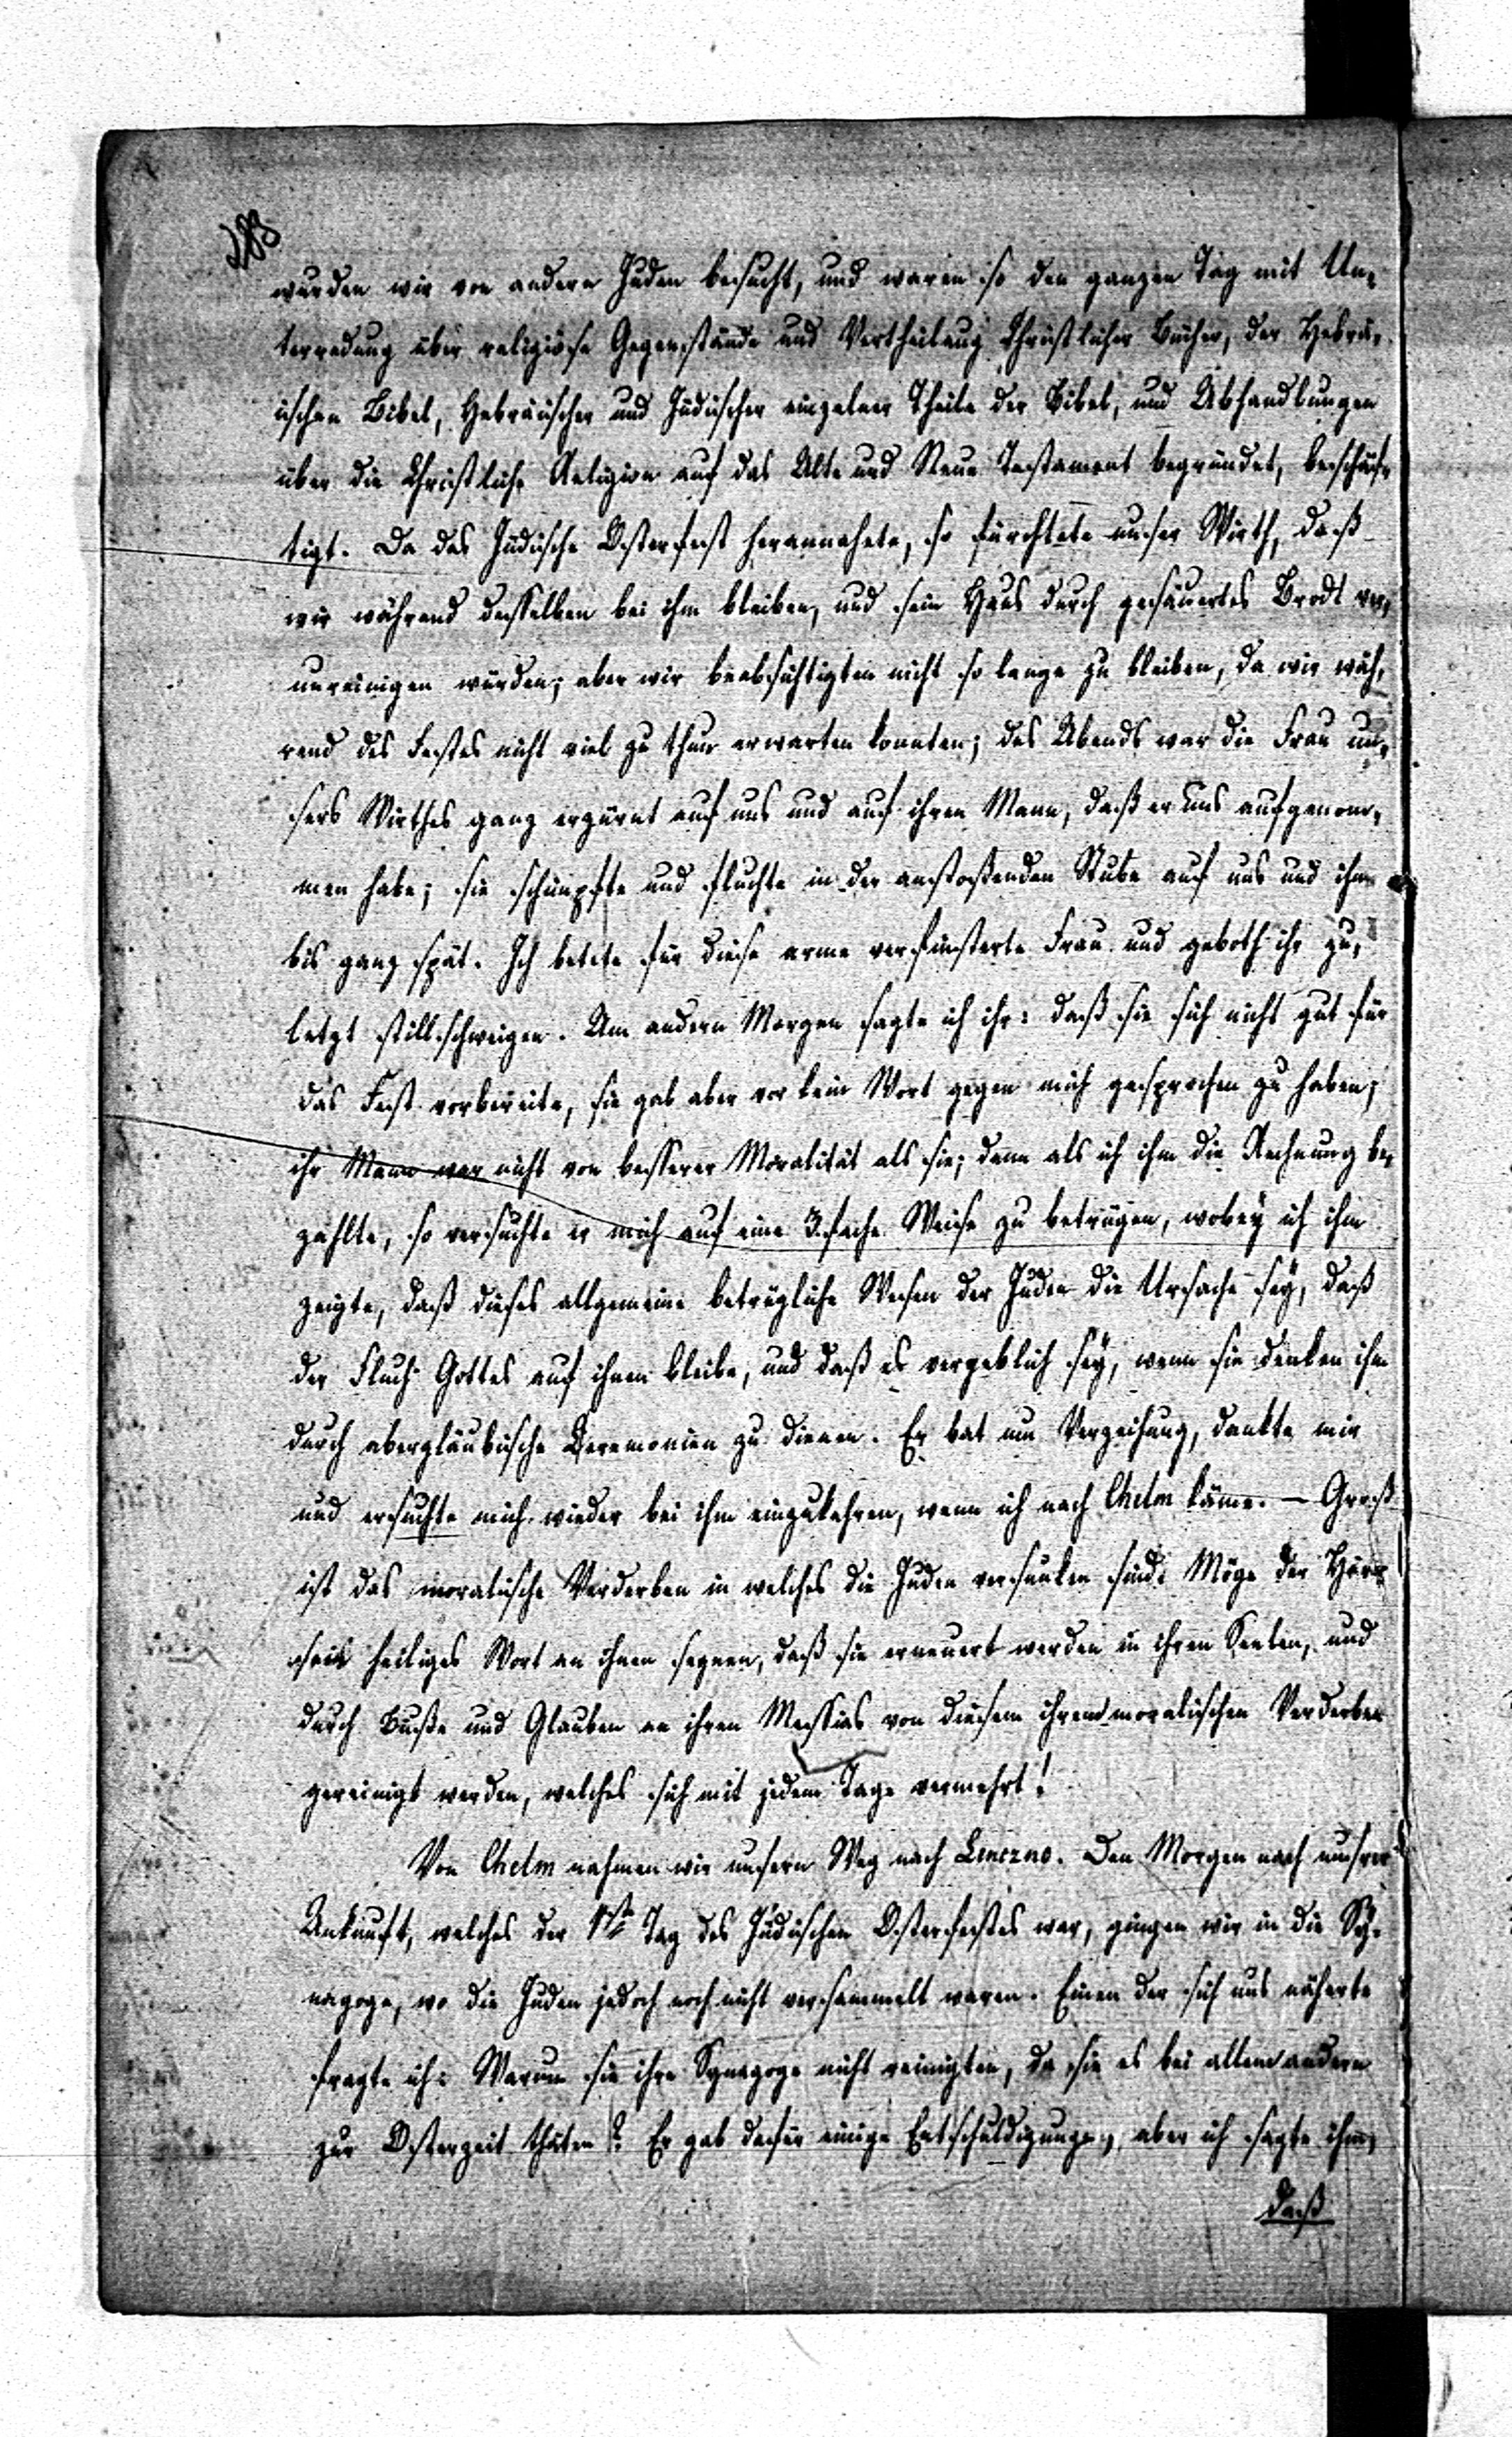 183
wurden wir von andern Juden besucht, und waren so den ganzen Tag mit Un-
terredung über religiöse Gegenstände und Vertheilung Christlicher Bücher, der Hebrä-
ischen Bibel, Hebräischer und Jüdischer einzelner Theile der Bibel, und Abhandlungen
über die Christliche Religion auf das Alte und Neue Testament begründet, beschäf-
tigt. Da das Jüdische Osterfest herannahete, so fürchtete unser Wirth, daß
wir während desselben bei ihm bleiben, und sein Haus durch gesäuertes Brodt ver-
unreinigen würden; aber wir beabsichtigten nicht so lange zu bleiben, da wir wäh-
rend des Festes nicht viel zu thun erwarten konnten; des Abends war die Frau un-
sers Wirthes ganz erzürnt auf uns und auf ihren Mann, daß er uns aufgenom-
men habe; sie schimpfte und fluchte in der anstoßenden Stube auf uns und ihn
bis ganz spät. Ich betete für diese arme verfinsterte Frau und geboth ihr zu-
letzt stillschweigen. Am andern Morgen sagte ich ihr: daß sie sich nicht gut für
das Fest vorbereite, sie gab aber vor kein Wort gegen mich gesprochen zu haben;
ihr Mann war nicht von besserer Moralität als sie; denn als ich ihm die Rechnung be-
zahlte, so versuchte er mich auf eine 3.fache Weise zu betrügen, wobey ich ihm
zeigte, daß dieses allgemeine betrügliche Wesen der Juden die Ursache sey, daß
der Fluch Gottes auf ihnen bleibe, und daß es vergeblich sey, wenn sie denken ihm
durch abergläubische Ceremonien zu dienen. Er bat um Verzeihung, dankte mir
und ersuchte mich wieder bei ihm einzukehren, wenn ich nach Chelm käme. — Groß
ist das moralische Verderben in welches die Juden versunken sind. Möge der Herr
sein heiliges Wort an ihnen segnen, daß sie erneuert werden in ihren Seelen, und
durch Buße und Glauben an ihren Messias von diesem ihrem moralischen Verderben
gereinigt werden, welches sich mit jedem Tage vermehrt!
Von Chelm nahmen wir unsern Weg nach Lenczno. Den Morgen nach unsrer
Ankunft, welches der 1te Tag des Jüdischen Osterfestes war, gingen wir in die Sy-
nagoge, wo die Juden jedoch noch nicht versammelt waren. Einen der sich uns näherte
fragte ich: Warum sie ihre Synagoge nicht reinigten, da sie es bei allem andern
zur Osterzeit thäten? Er gab dafür einige Entschuldigungen, aber ich sagte ihm,
daß